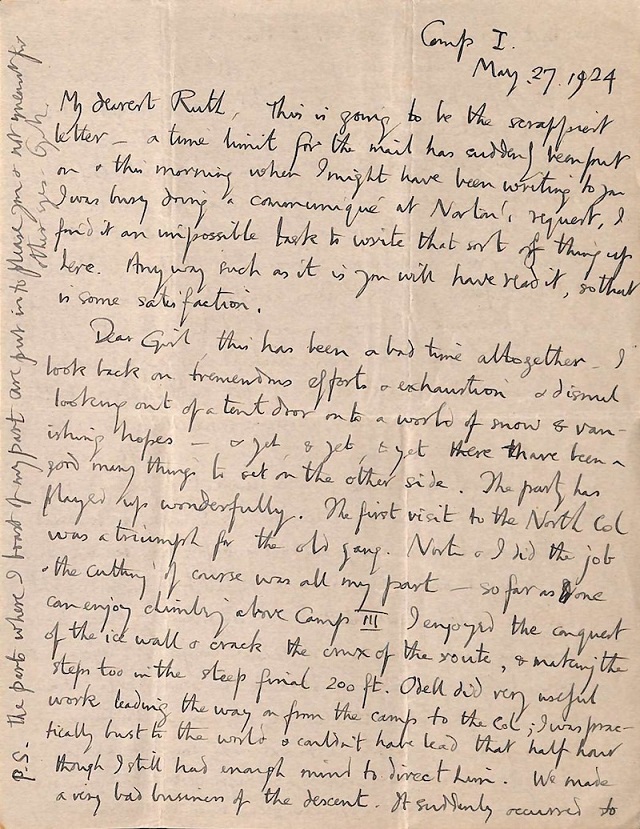 Camp I.
May 27. 1924
My dearest Ruth, This is going to be the scrappiest
letter — a time limit for the mail has suddenly been put
on & this morning when I might have been writing to you
I was busy doing a communiqué at Norton's request, I
find it an impossible task to write that sort of thing up
here. Anyway such as it is you will have read it, so that
is some satisfaction.
Dear Girl, this has been a bad time altogether – I
look back on tremendous efforts & exhaustion & dismal
looking out of a tent door onto a world of snow & van-
ishing hopes — & yet, & yet, & yet there have been a
good many things to set on the other side. The party has
played up wonderfully. The first visit to the North Col
was a triumph for the old gang. Norton & I did the job
& the cutting of course was all my part — so far as one
can enjoy climbing above Camp III I enjoyed the conquest
of the ice wall & crack the crux of the route, & making the
steps too in the steep final 200 ft. Odell did very useful
work leading the way on from the camp to the Col; I was prac-
tically bust to the world & couldn't have lead that half hour
though I still had enough mind to direct him. We made
a very bad business of the descent. It suddenly occurred to
P.S. the parts where I boast of my part are put in to please you & not meant for
other eyes. G.M.